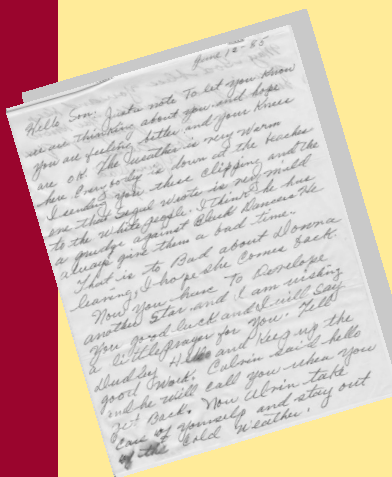 June 12-85
Hello Son: Just a note To let you Know
we are thinking about you and hope
you are feeling better and your Knees
are OK. The weather is very warm
here Everybody is down at the Beaches
I sending you these Clipping and the
one that Segal wrote is very mild
to the white people. I think he has
a grudge against Black Dancers He
always give them a bad time.
That is to Bad about Donna
leaving, I hope she Comes Back.
Now you have To Develope
another Star and I am wishing
you good luck and I will Say
a little prayer for you. Tell
Dudley Hello and Keep up the
good work. Calvin said hello
and he will call you when you
get Back. Now Alvin take
care of yourself and stay out
of the Cold weather.